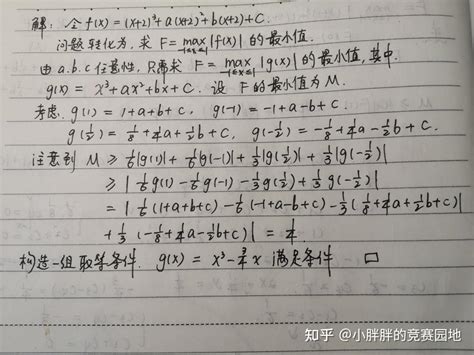 解: 令 f(x) = (x+2)³+a(x+2)²+b(x+2)+C.
问题转化为, 求 F= max -1≤x≤1 |f(x)| 的最小值.
由 a.b.c 任意性, 只需求 F= max -1≤x≤1 |g(x)| 的最小值, 其中
g(x) = x³+ax²+bx+C. 设 F 的最小值为 M.
考虑. g(1) = 1+a+b+c, g(-1) = -1+a-b+c.
g(1/2) = 1/8+1/4a+1/2b+C, g(-1/2) = -1/8+1/4a-1/2b+C.
注意到 M ≥ 1/6|g(1)|+1/6|g(-1)|+1/3|g(1/2)|+1/3|g(-1/2)|
≥ |1/6g(1)-1/6g(-1)-1/3g(1/2)+1/3g(-1/2)|
= |1/6(1+a+b+c)-1/6(-1+a-b+c)-1/3(1/8+1/4a+1/2b+c)
+1/3(-1/8+1/4a-1/2b+c)| = 1/4
构造一组取等条件. g(x) = x³-3/4x 满足条件 □
知乎 @小胖胖的竞赛园地